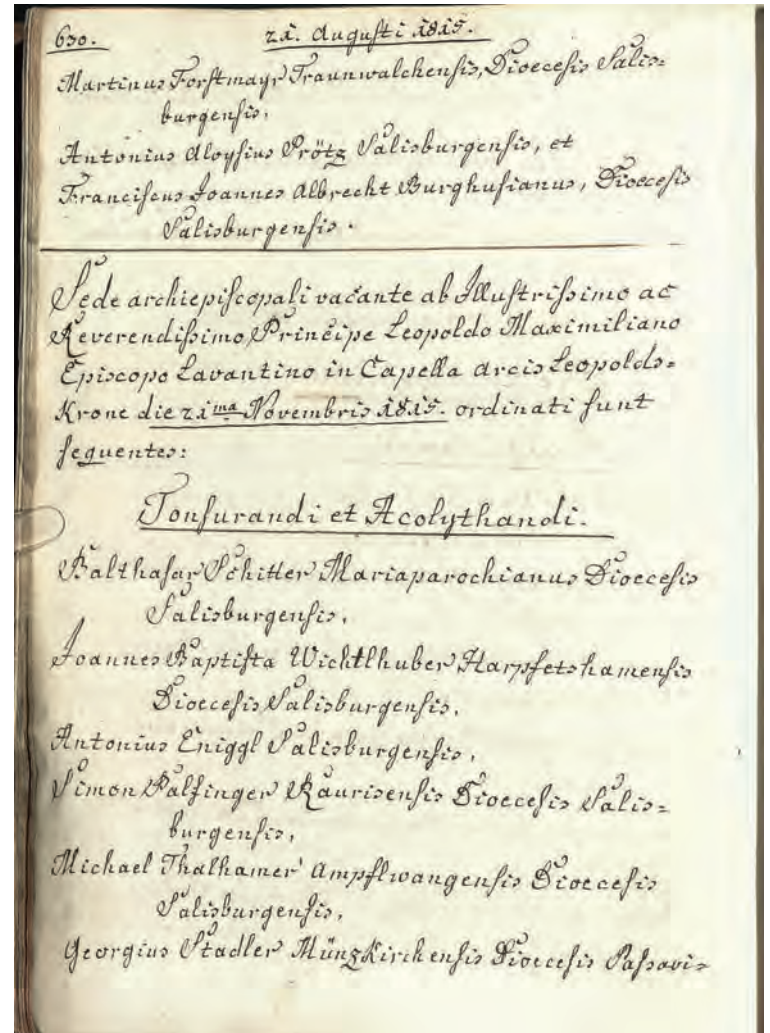 630. 21. Augusti 1815.
Martinus Forstmayr Traunwalchensis, Dioecesis Salis=
burgensis,
Antonius Aloysius Prötz Salisburgensis, et
Franciscus Joannes Albrecht Burghusianus, Dioecesis
Salisburgensis.
Sede archiepiscopali vacante ab Illustrissimo ac
Reverendissimo Principe Leopoldo Maximiliano
Episcopo Lavantino in Capella arcis Leopolds=
Krone die 21ma Novembris 1815. ordinati sunt
sequentes:
Tonsurandi et Acolythandi.
Balthasar Schitter Mariaparochianus Dioecesis
Salisburgensis,
Joannes Baptista Wichtlhuber Harpfetshamensis
Dioecesis Salisburgensis,
Antonius Eniggl Salisburgensis,
Simon Palfinger Raurisensis Dioecesis Salis=
burgensis,
Michael Thalhamer Ampflwangensis Dioecesis
Salisburgensis,
Georgius Stadler MünzKirchensis Dioecesis Passavi=